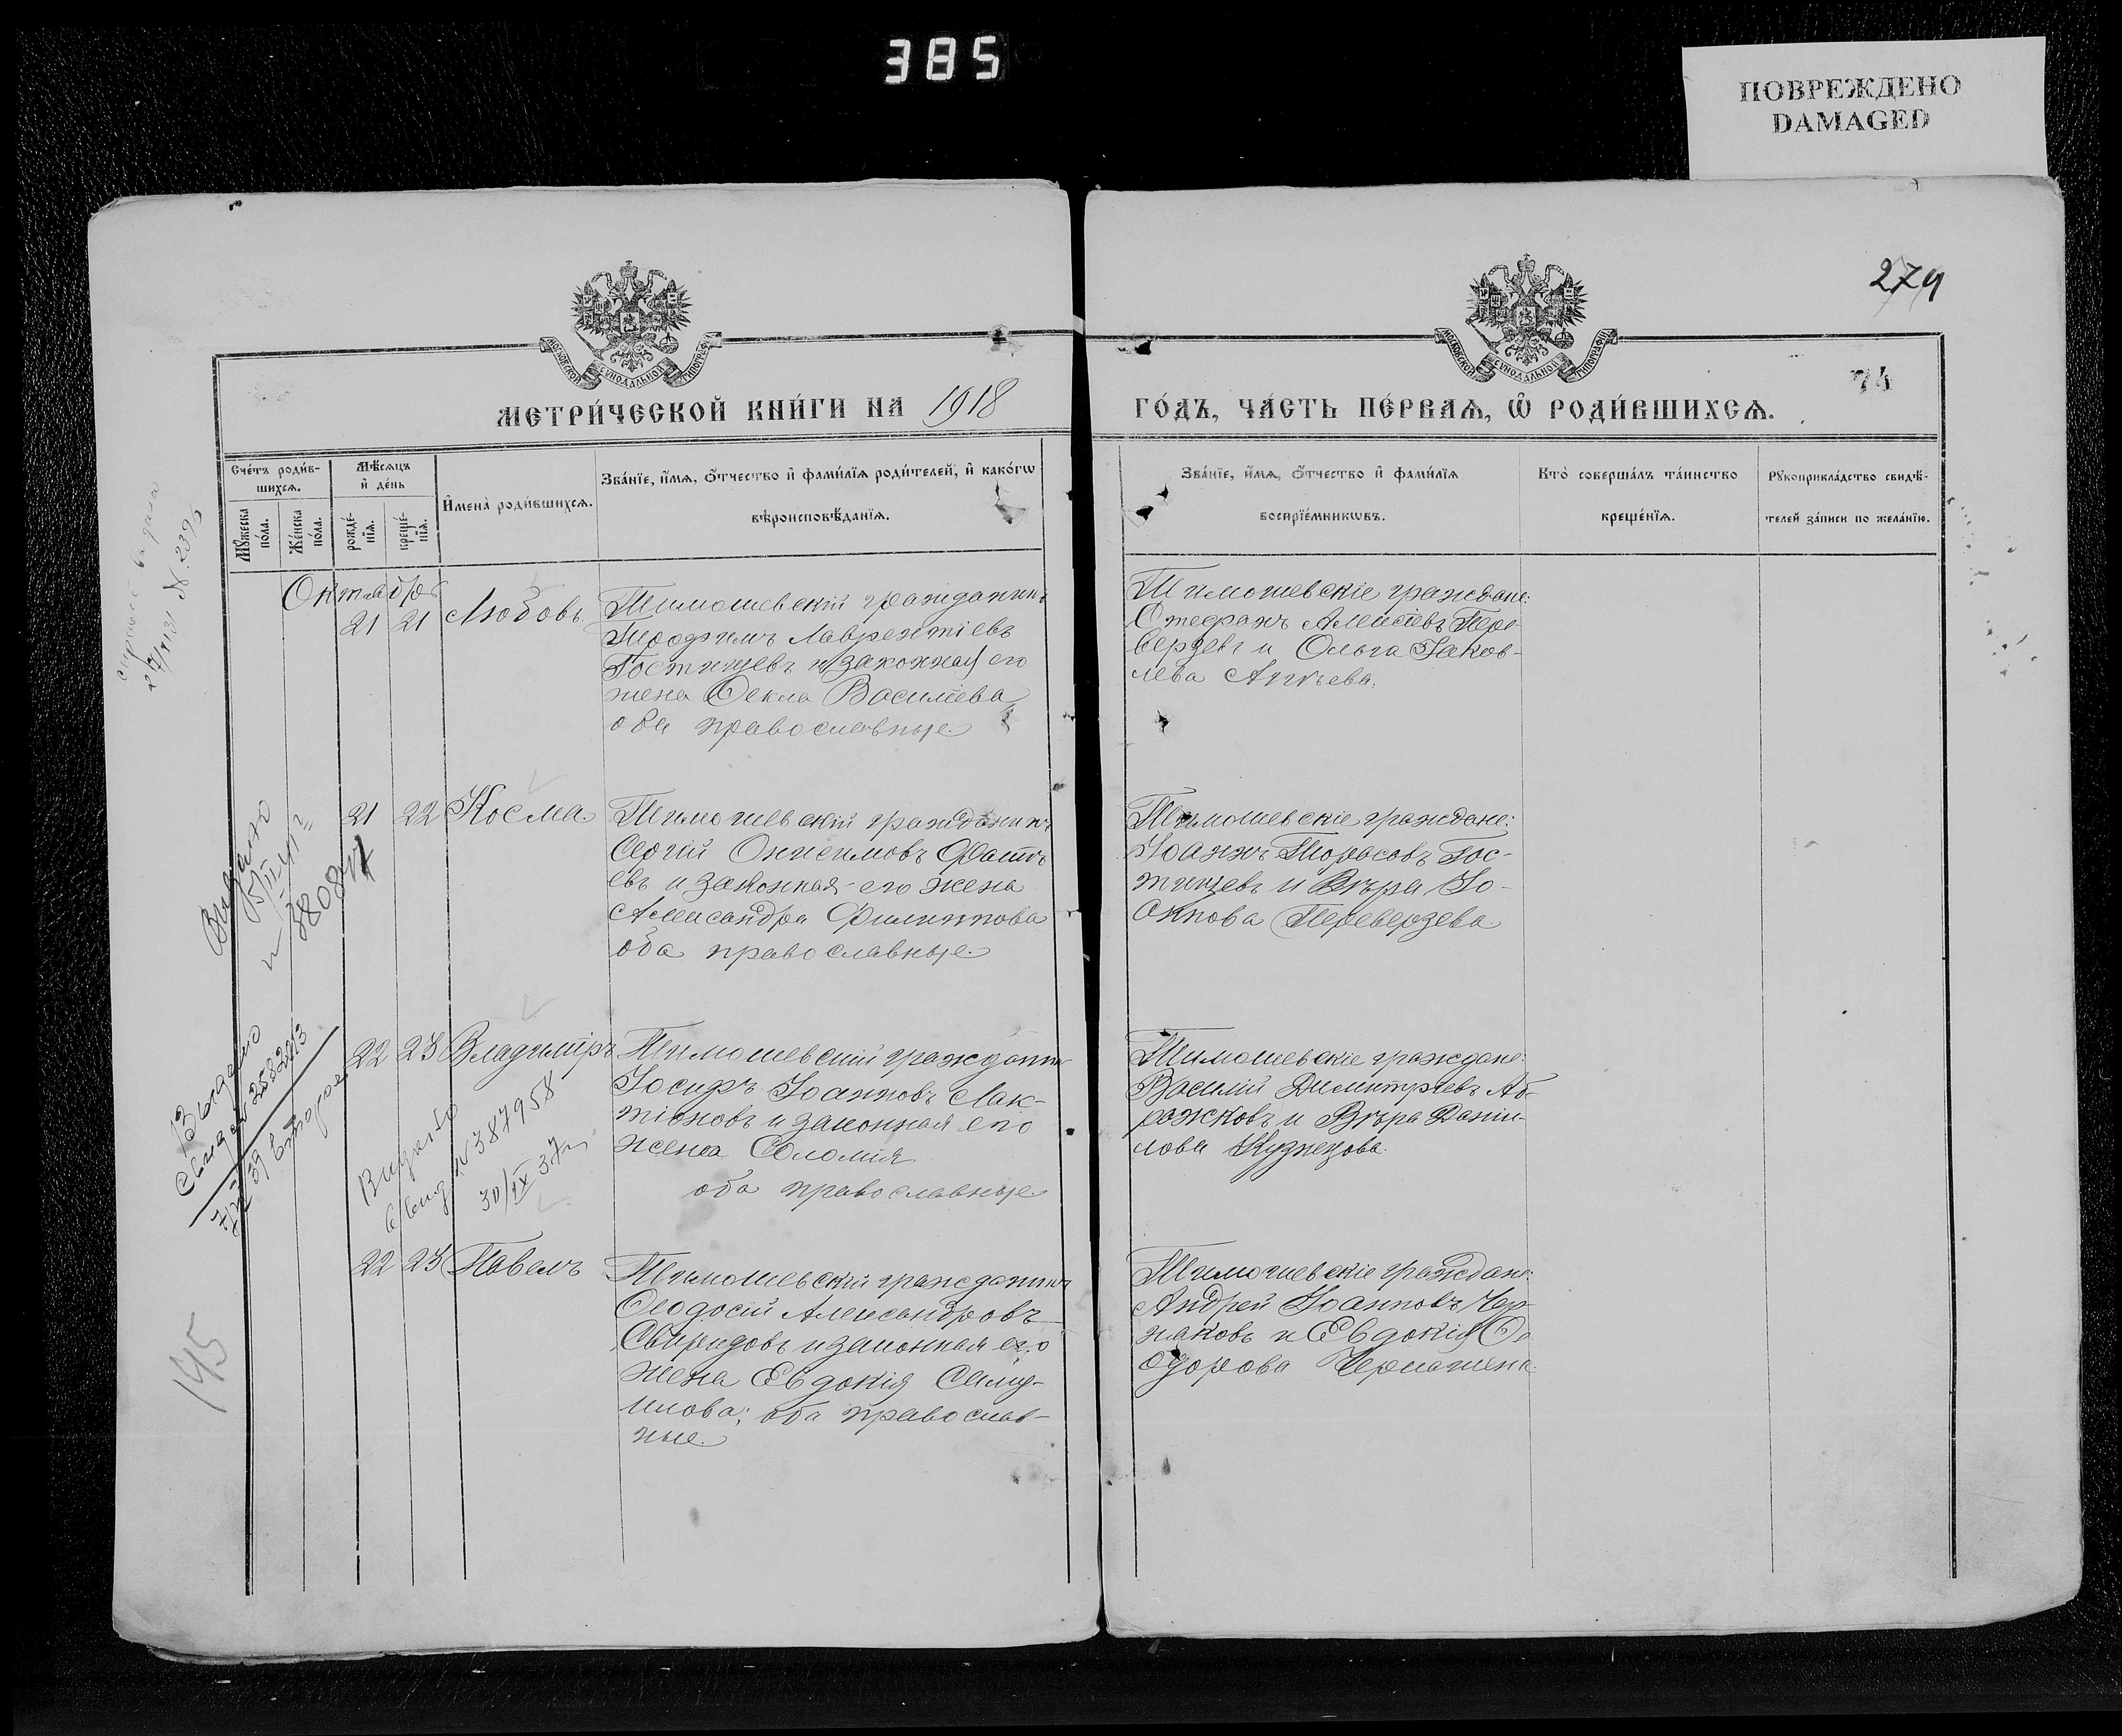 385
ПОВРЕЖДЕНО
DAMAGED
279
74
МОСКОВСКОЙ СѴНОДАЛЬНОЙ ТИПОГРАФІИ
МОСКОВСКОЙ СѴНОДАЛЬНОЙ ТИПОГРАФІИ
МЕТРИ́ЧЕСКОЙ КНИ́ГИ НА 1918
ГО́ДЪ, ЧА́СТЬ ПЕ́РВАѦ, Ѡ҆ РОДИ́ВШИХСѦ.
Сче́тъ роди́в-
шихсѧ.
Мѣ́сѧцъ
и҆ де́нь
Мꙋ́жеска
по́ла.
Же́нска
по́ла.
рожде́-
нїѧ.
креще́-
нїѧ.
И҆мена̀ роди́вшихсѧ.
Зва́нїе, и҆́мѧ, ѻ҆́тчество и҆ фами́лїѧ роди́телей, и҆ како́гѡ
вѣроисповѣ́данїѧ.
Зва́нїе, и҆́мѧ, ѻ҆́тчество и҆ фами́лїѧ
воспрїе́мникѡвъ.
Кто̀ соверша́лъ та́инство
креще́нїѧ.
Рꙋкоприкла́дство свидѣ́-
телей за́писи по жела́нїю.
Октябрь
21 21 Любовь
Тимошевскій гражданинъ
Трофимъ Лаврентіевъ
Гостищевъ и законная его
жена Ѳекла Василіева
оба православные.
Тимошевскіе граждане:
Стефанъ Алексіевъ Пере-
верзевъ и Ольга Іаков-
лева Агѣева.
21 22 Косма
Тимошевскій гражданинъ
Сергій Онисимовъ Фатѣ-
евъ и законная его жена
Александра Филиппова
оба православные.
Тимошевскіе граждане:
Іоаннъ Тарасовъ Гос-
тищевъ и Вѣра Іо-
аннова Переверзева
22 23 Владиміръ
Тимошевскій гражданинъ
Іосифъ Іоанновъ Лак-
тіоновъ и законная его
жена Соломія
оба православные
Тимошевскіе граждане:
Василій Димитріевъ Аб-
ражковъ и Вѣра Дани-
лова Кузнецова.
22 23 Павелъ
Тимошевскій гражданинъ
Ѳеодосій Александровъ
Свиридовъ и законная его
жена Евдокія Саму-
илова; оба православ-
ные.
Тимошевскіе граждане:
Андрей Іоанновъ Чер-
наковъ и Евдокія Ѳе
одорова
справка выдана
№ 2395
Выдано
№ 380847
Выдано
второе
Выдано
№ 387958
30/IX 37
145